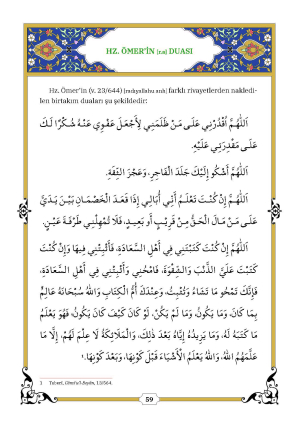 HZ. ÖMER'İN (r.a) DUASI
Hz. Ömer'in (v. 23/644) (radıyallahu anh) farklı rivayetlerden nakledi-
len birtakım duaları şu şekildedir:
اَللّٰهُمَّ أَقْدِرْنِي عَلَى مَنْ ظَلَمَنِي لِأَجْعَلَ عَفْوِي عَنْهُ شُكْرًا لَكَ
عَلَى مَقْدِرَتِي عَلَيْهِ.
اَللّٰهُمَّ أَشْكُو إِلَيْكَ جَلَدَ الْفَاجِرِ، وَعَجْزَ الثِّقَةِ.
اَللّٰهُمَّ إِنْ كُنْتَ تَعْلَمُ أَنِّي أُبَالِي إِذَا قَعَدَ الْخَصْمَانِ بَيْنَ يَدَيَّ
عَلَى مَنْ مَالَ الْحَقُّ مِنْ قَرِيبٍ أَوْ بَعِيدٍ، فَلَا تُمْهِلْنِي طَرْفَةَ عَيْنٍ.
اَللّٰهُمَّ إِنْ كُنْتَ كَتَبْتَنِي فِي أَهْلِ السَّعَادَةِ، فَأَثْبِتْنِي فِيهَا وَإِنْ كُنْتَ
كَتَبْتَ عَلَيَّ الذَّنْبَ وَالشِّقْوَةَ، فَامْحُنِي وَأَثْبِتْنِي فِي أَهْلِ السَّعَادَةِ،
فَإِنَّكَ تَمْحُو مَا تَشَاءُ وَتُثْبِتُ، وَعِنْدَكَ أُمُّ الْكِتَابِ وَاللّٰهُ سُبْحَانَهُ عَالِمٌ
بِمَا كَانَ، وَمَا يَكُونُ، وَمَا لَمْ يَكُنْ، لَوْ كَانَ كَيْفَ كَانَ يَكُونُ، فَهُوَ يَعْلَمُ
مَا كَتَبَهُ لَهُ، وَمَا يَزِيدُهُ إِيَّاهُ بَعْدَ ذٰلِكَ، وَالْمَلَائِكَةُ لَا عِلْمَ لَهُمْ، إِلَّا مَا
عَلَّمَهُمُ اللّٰهُ، وَاللّٰهُ يَعْلَمُ الْأَشْيَاءَ قَبْلَ كَوْنِهَا، وَبَعْدَ كَوْنِهَا.
Taberî, Câmiu'l-Beyân, 13/564.
59